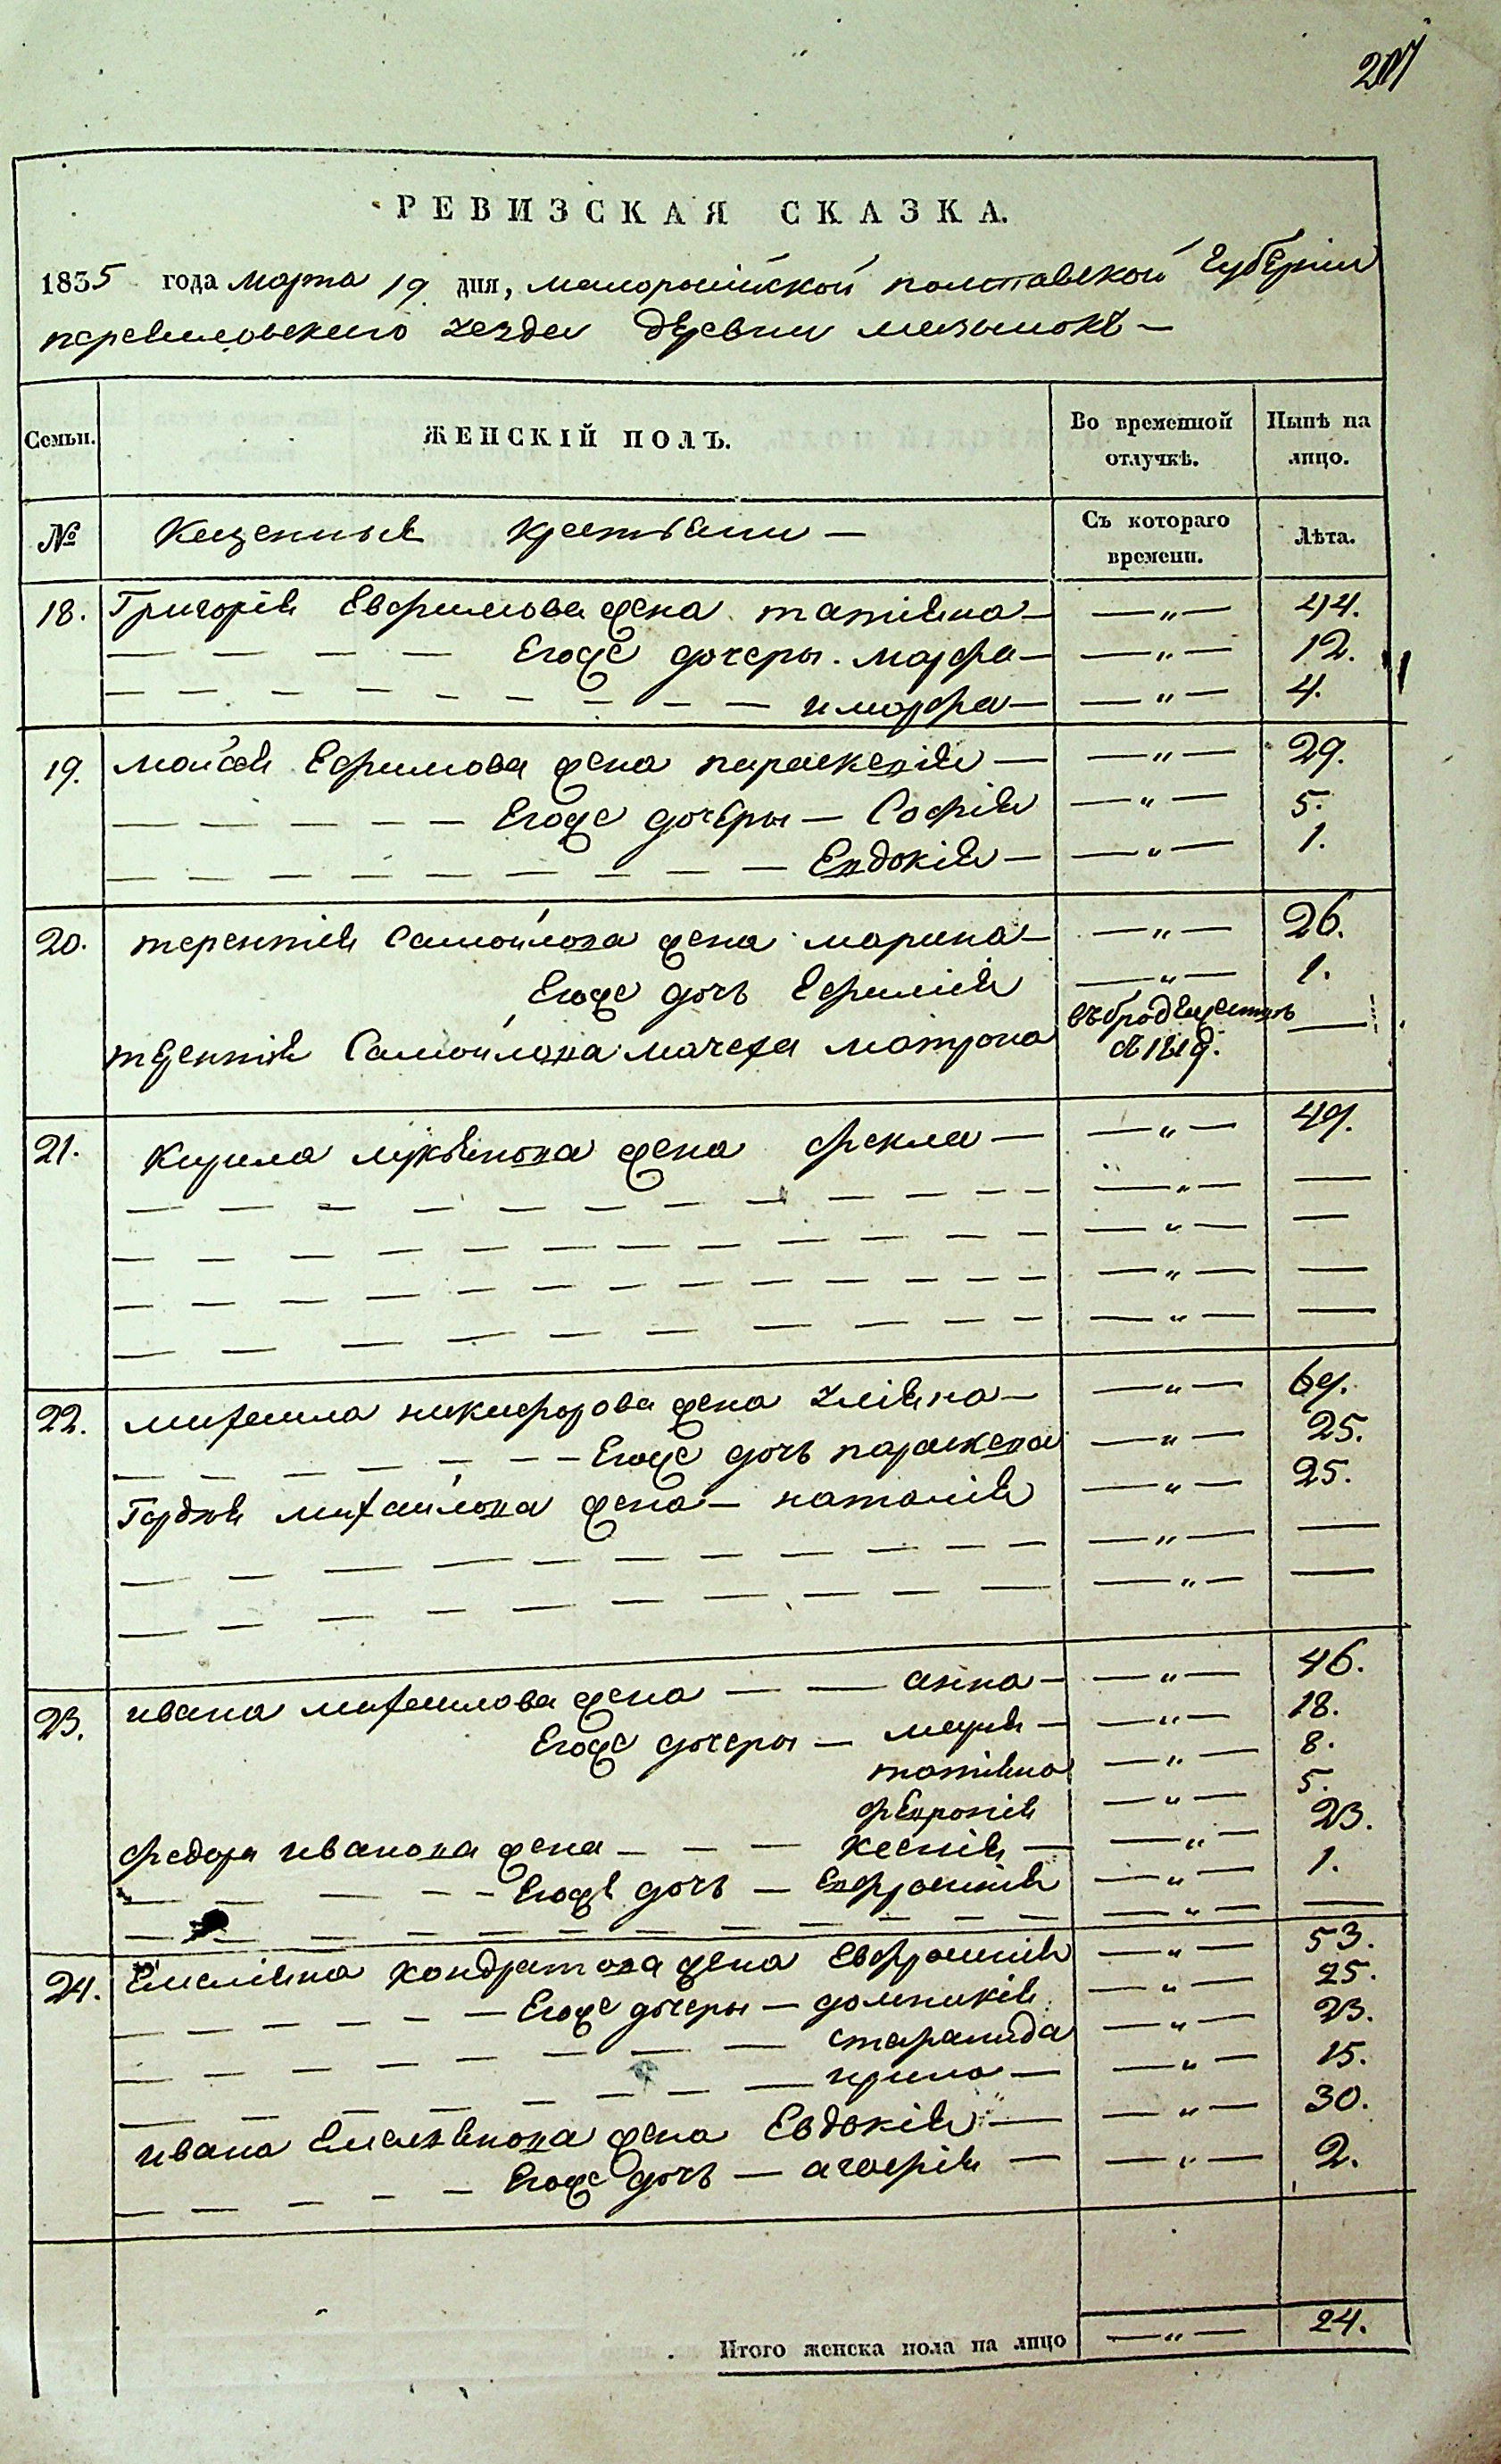 РЕВИЗСКАЯ СКАЗКА.
1835 года марта 19 дня, малоросийской полтавской губернии
уезда деревни
Семьи.
ЖЕНСКІЙ ПОЛЪ.
Во временной отлучкѣ.
Нынѣ на лицо.
№
Казенные крестьяни —
Съ котораго времени.
Лѣта.
18. Григорія Евфимова жена татіяна — — „ — 44.
— — — — Егоже дочеры. марфа — — „ — 12.
— — — — — — — — — имарфа — — „ — 4.
19. моисея Ефимова жена параскевія — — „ — 29.
— — — — — Егоже дочеры — Софія — „ — 5.
— — — — — — — — — Евдокія — — „ — 1.
20. терентія Самойлова жена марина — — „ — 26.
Егоже дочь Ефимія — „ — 1.
терентія Самойлова мачеха матрона —
21. Кирила лукянова жена фекла — — „ — 49.
— — — — — — — — — — — — „ — —
— — — — — — — — — — — — „ — —
— — — — — — — — — — — — „ — —
— — — — — — — — — — — „ — —
22. михаила никифорова жена улияна — — „ — 69.
— — — — — — — Егоже дочь параскева — „ — 25.
Гордея михайлова жена — наталія — „ — 25.
— — — — — — — — — — — „ — —
— — — — — — — — — — — „ — —
23. ивана михаилова жена — — анна — — „ — 46.
Егоже дочеры — марія — — „ — 18.
татіяна — „ — 8.
февронія — „ — 5.
федора иванова жена — — — Ксенія — — „ — 23.
— — — — — Егоже дочь — Евфросинія — „ — 1.
— — — — — — — — — — — „ — —
24. Емеліяна кондратова жена Евфросинія — „ — 53.
— — — — — Егоже дочеры — домникія — „ — 25.
— — — — — — — — — — „ — 23.
— — — — — — — ирина — — „ — 15.
ивана Емелянова жена Евдокія — — „ — 30.
— — — — — Егоже дочь — агафія — — „ — 2.
Итого женска пола на лицо — „ — 24.